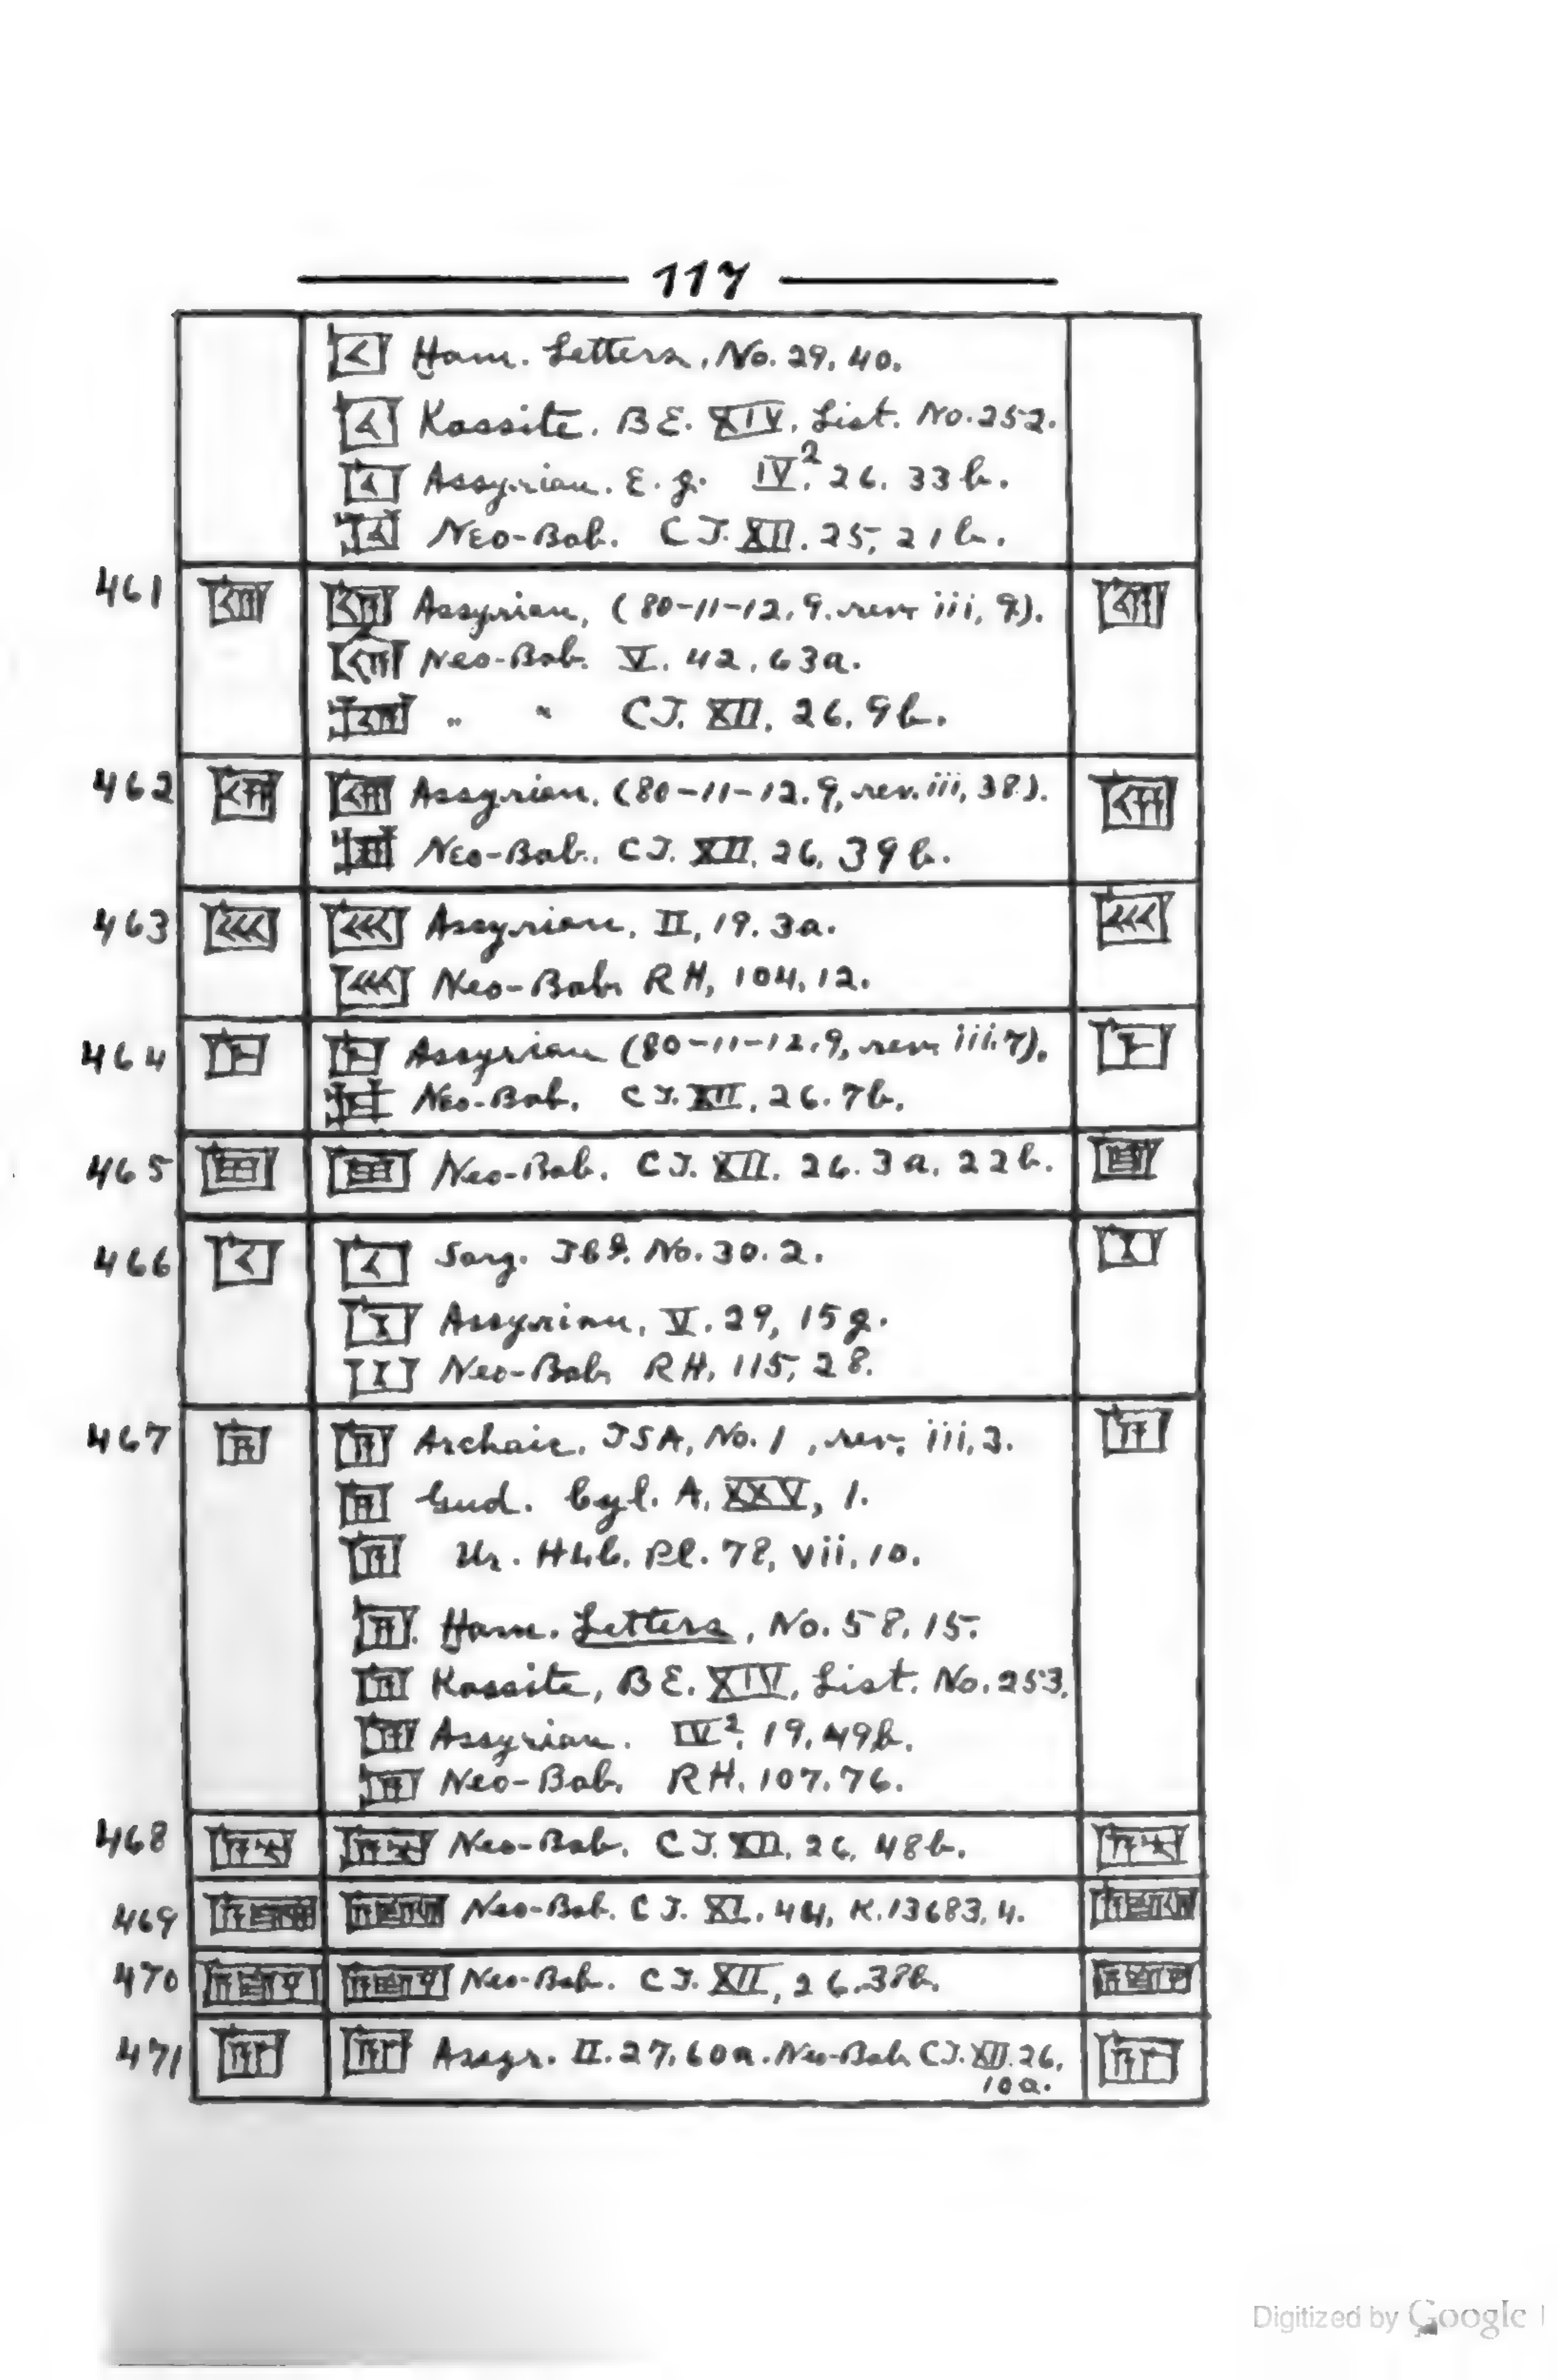 117
Ham. Letters, No. 29, 40.
Kassite. BE. XIV, List. No. 252.
Assyrian. E. g. IV², 26. 33 b.
Neo-Bab. CT. XII. 25, 21 b.
461 Assyrian, (80-11-12, 9. rev. iii, 9).
Neo-Bab. V. 42, 63a.
" " CT. XII, 26, 9 b.
462 Assyrian. (80-11-12, 9, rev. iii, 38).
Neo-Bab. CT. XII, 26, 39 b.
463 Assyrian, II, 19. 3a.
Neo-Bab. RH, 104, 12.
464 Assyrian (80-11-12, 9, rev. iii. 7).
Neo-Bab. CT. XII, 26. 7 b.
465 Neo-Bab. CT. XII. 26. 3 a, 22 b.
466 Sarg. No. 30. 2.
Assyrian, V. 29, 15 g.
Neo-Bab. RH, 115, 28.
467 Archaic. TSA, No. 1, rev. iii, 3.
Gud. Cyl. A. XXV, 1.
Ur. HLC. Pl. 78, vii, 10.
Ham. Letters, No. 58, 15.
Kassite, BE. XIV, List. No. 253.
Assyrian. IV², 19, 49 b.
Neo-Bab. RH. 107. 76.
468 Neo-Bab. CT. XII, 26, 48 b.
469 Neo-Bab. CT. XI. 44, K. 13683, 4.
470 Neo-Bab. CT. XII, 26. 38 b.
471 Assyr. II. 27, 60a. Neo-Bab. CT. XII. 26,
10 a.
Digitized by Google